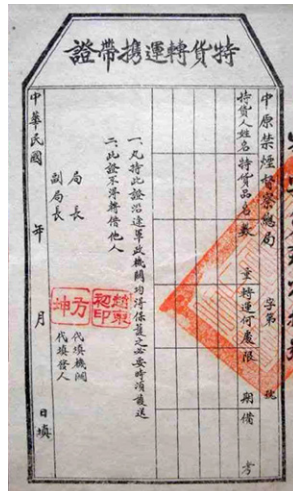 特貨轉運攜帶證
中原禁煙督察總局　字第　號
持貨人姓名　特貨品名　數　量　轉運何處　限　期　備　考
一、凡持此證沿途軍政機關均須保護之必要時須護送
二、此證不得轉借他人
局　長
副局長
方坤
初印
代填機關
代填發人
中華民國　年　月　日填